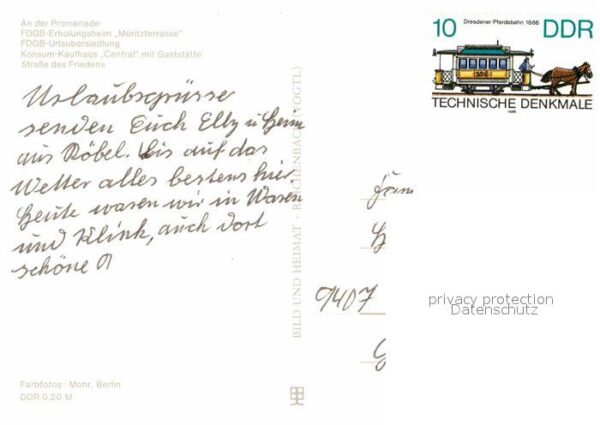 An der Promenade
FDGB-Erholungsheim „Müritzterrasse"
FDGB-Urlaubersiedlung
Konsum-Kaufhaus „Central" mit Gaststätte
Straße des Friedens
Urlaubsgrüsse
senden Euch Elly u. Heini
aus Röbel. Bis auf das
Wetter alles bestens hier
Heute waren wir in Waren
und Klink, auch dort
schöne
Farbfotos: Mohr, Berlin
DDR 0,20 M
BILD UND HEIMAT · REICHENBACH (VOGTL)
Dresdener Pferdebahn 1886
10 DDR
TECHNISCHE DENKMALE
1986
Fam
9407
privacy protection
Datenschutz